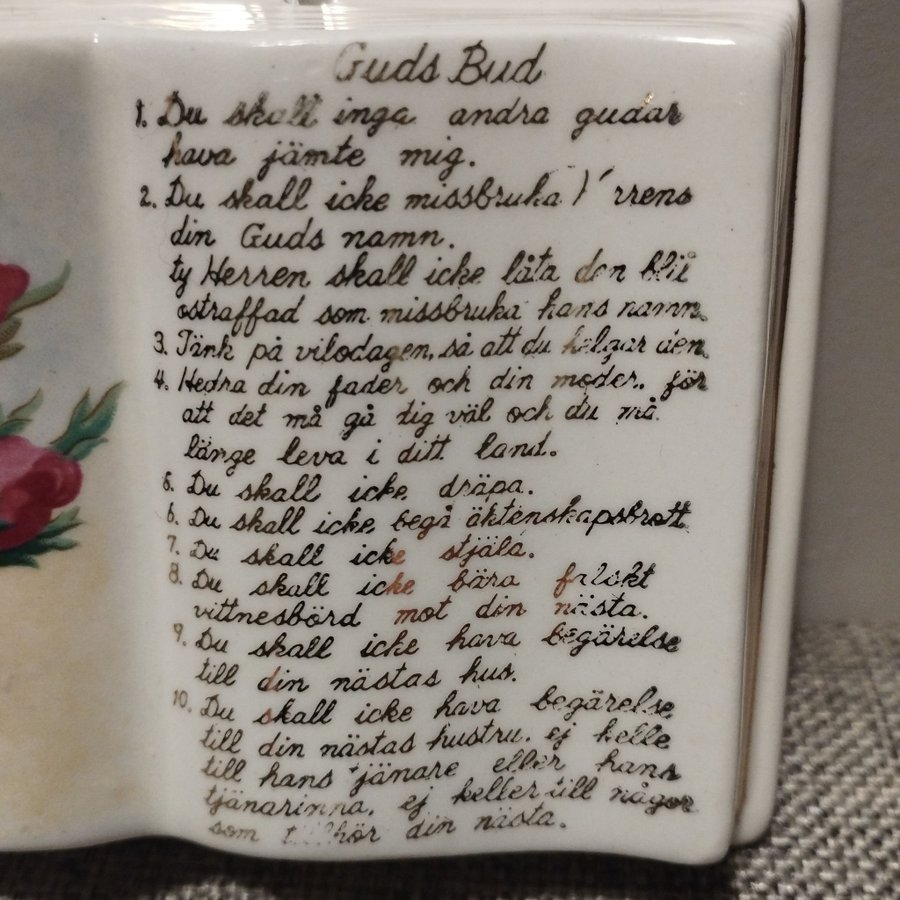 Guds Bud
1. Du skall inga andra gudar
hava jämte mig.
2. Du skall icke missbruka rrens
din Guds namn.
ty Herren skall icke låta den bli
ostraffad som missbruka hans namn.
3. Tänk på vilodagen, så att du helgar den.
4. Hedra din fader och din moder. för
att det må gå dig väl och du må
länge leva i ditt land.
5. Du skall icke dräpa.
6. Du skall icke begå äktenskapsbrott
7. Du skall icke stjäla.
8. Du skall icke bära falskt
vittnesbörd mot din nästa.
9. Du skall icke hava begärelse
till din nästas hus.
10. Du skall icke hava begärelse
till din nästas hustru. ej helle
till hans tjänare eller hans
tjänarinna. ej heller till något
som tillhör din nästa.